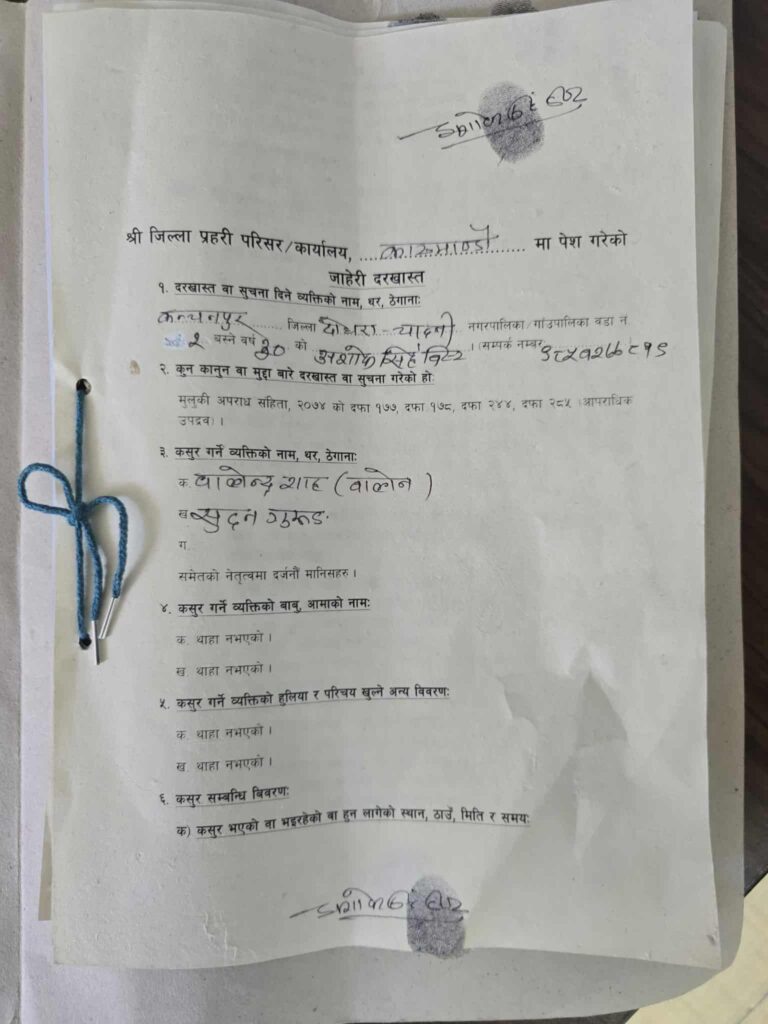 श्री जिल्ला प्रहरी परिसर/कार्यालय, ....काठमाण्डौ.... मा पेश गरेको
जाहेरी दरखास्त
१. दरखास्त वा सुचना दिने व्यक्तिको नाम, थर, ठेगानाः
कन्चनपुर ........ जिल्ला दोधारा-चादनी नगरपालिका/गाउँपालिका वडा न
२ बस्ने वर्ष ३० को अशोक सिंह । (सम्पर्क नम्बर
२. कुन कानुन वा मुद्दा बारे दरखास्त वा सुचना गरेको हो:
मुलुकी अपराध संहिता, २०७४ को दफा १७७, दफा १७८, दफा २४४, दफा २८५ (आपराधिक
उपद्रव) ।
३. कसुर गर्ने व्यक्तिको नाम, थर, ठेगानाः
क. वालेन्द्र शाह (वालेन )
ख. सुदन गुरुङ
ग.
समेतको नेतृत्वमा दर्जनौं मानिसहरु ।
४. कसुर गर्ने व्यक्तिको बाबु, आमाको नामः
क. थाहा नभएको ।
ख. थाहा नभएको ।
५. कसुर गर्ने व्यक्तिको हुलिया र परिचय खुल्ने अन्य बिवरणः
क. थाहा नभएको ।
ख. थाहा नभएको ।
६. कसुर सम्बन्धि बिवरणः
क) कसुर भएको वा भइरहेको वा हुन लागेको स्थान, ठाउँ, मिति र समयः